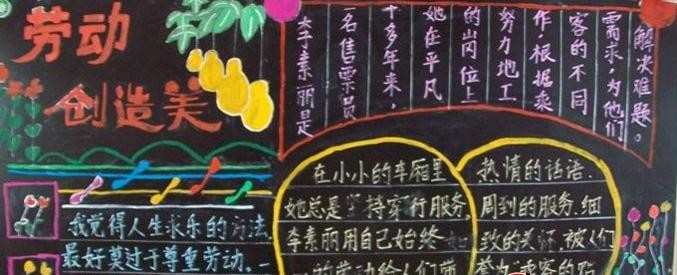 劳动
创造美
李素丽是
一名售票员
十多年来,
她在平凡
的岗位上
努力地工
作,根据乘
客的不同
需求,为他们
解决难题。
我觉得人生求乐的方法
最好莫过于尊重劳动.一
在小小的车厢里
她总是坚持穿行服务.
李素丽用自己始终如
一的劳动给人们带
热情的话语.
周到的服务.细
致的关怀.被人们
誉为"乘客的贴